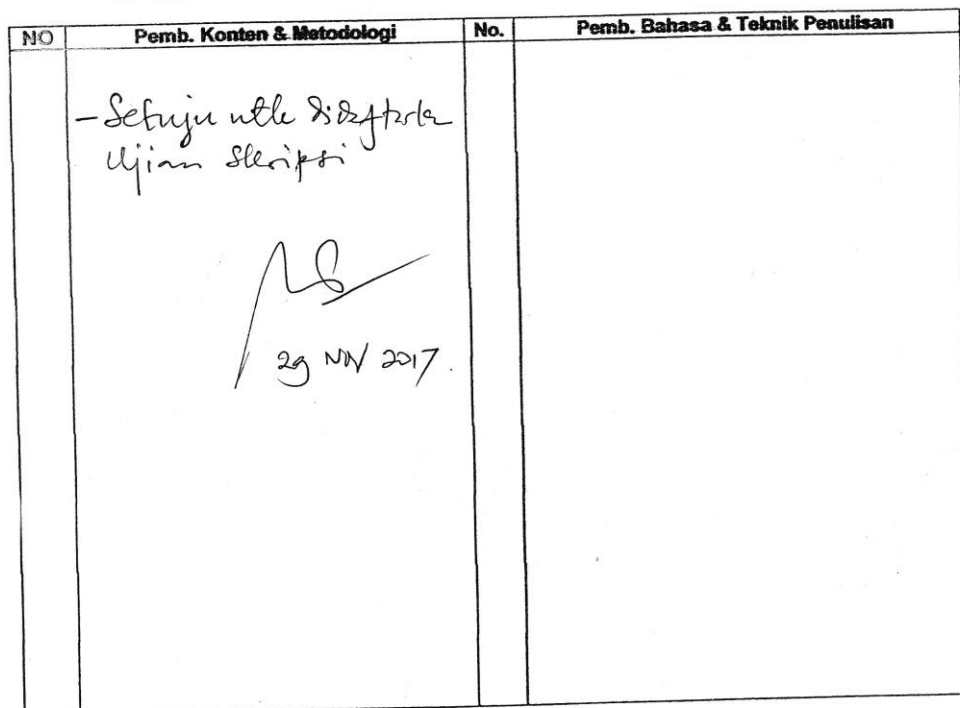 NO Pemb. Konten & Metodologi No. Pemb. Bahasa & Teknik Penulisan
- Setuju utk didaftarka
Ujian Skripsi
29 NOV 2017.